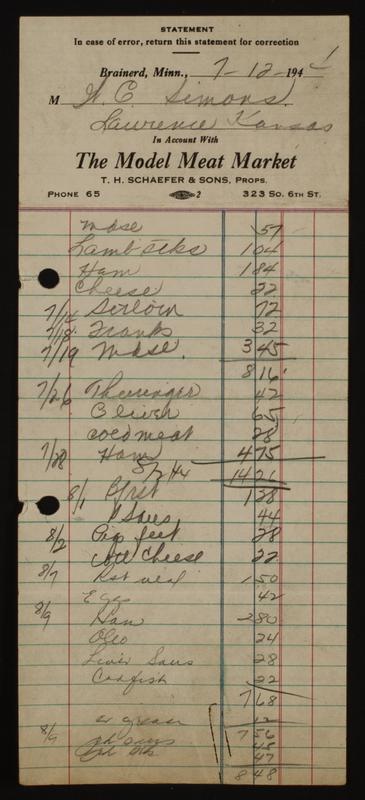 STATEMENT
In case of error, return this statement for correction
Brainerd, Minn., 7-12- 194
M W. C. Simons.
Lawrence Kansas
In Account With
The Model Meat Market
T. H. SCHAEFER & SONS, PROPS.
PHONE 65 2 323 SO. 6TH ST.
Mdse 57
Lamb 104
Ham 184
Cheese 22
7/14 Sirloin 72
7/18 Franks 32
7/19 Mdse. 345
816
7/26 Thuringer 42
65
Cold meat 28
7/28 Ham 475
1426
8/1 128
Saus 44
8/2 Pig feet 28
Cheese 22
8/7 Rst veal 150
Eggs 42
8/9 Ham 280
Oleo 24
Liver Saus 28
22
768
12
756
8/9 45
47
848